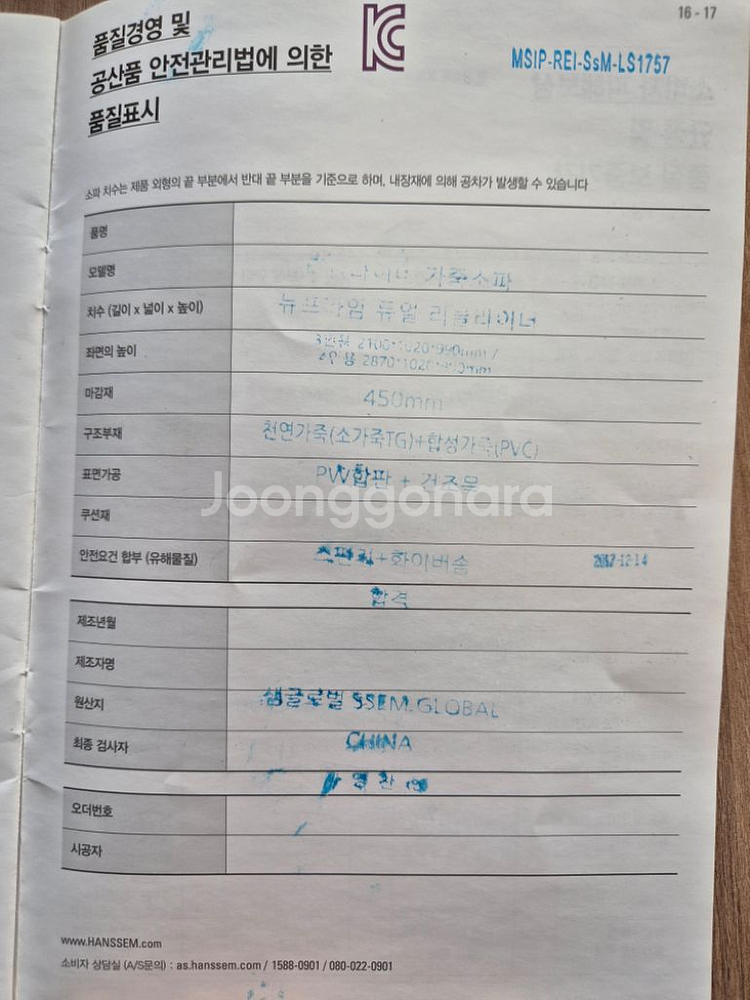 16 - 17
품질경영 및
공산품 안전관리법에 의한
품질표시
MSIP-REI-SsM-LS1757
소파 치수는 제품 외형의 끝 부분에서 반대 끝 부분을 기준으로 하며, 내장재에 의해 공차가 발생할 수 있습니다
품명
모델명
가죽소파
치수 (길이 x 넓이 x 높이)
듀얼 리클라이너
좌면의 높이
2100*1020*990mm /
2870*1020*
마감재
450mm
구조부재
천연가죽(소가죽TG)+합성가죽(PVC)
표면가공
PW합판 + 건조목
Joonggonara
쿠션재
안전요건 합부 (유해물질)
+화이버솜
2017-12-14
합격
제조년월
제조자명
원산지
쌤글로벌 SSEM.GLOBAL
최종 검사자
CHINA
오더번호
시공자
www.HANSSEM.com
소비자 상담실 (A/S문의) : as.hanssem.com / 1588-0901 / 080-022-0901